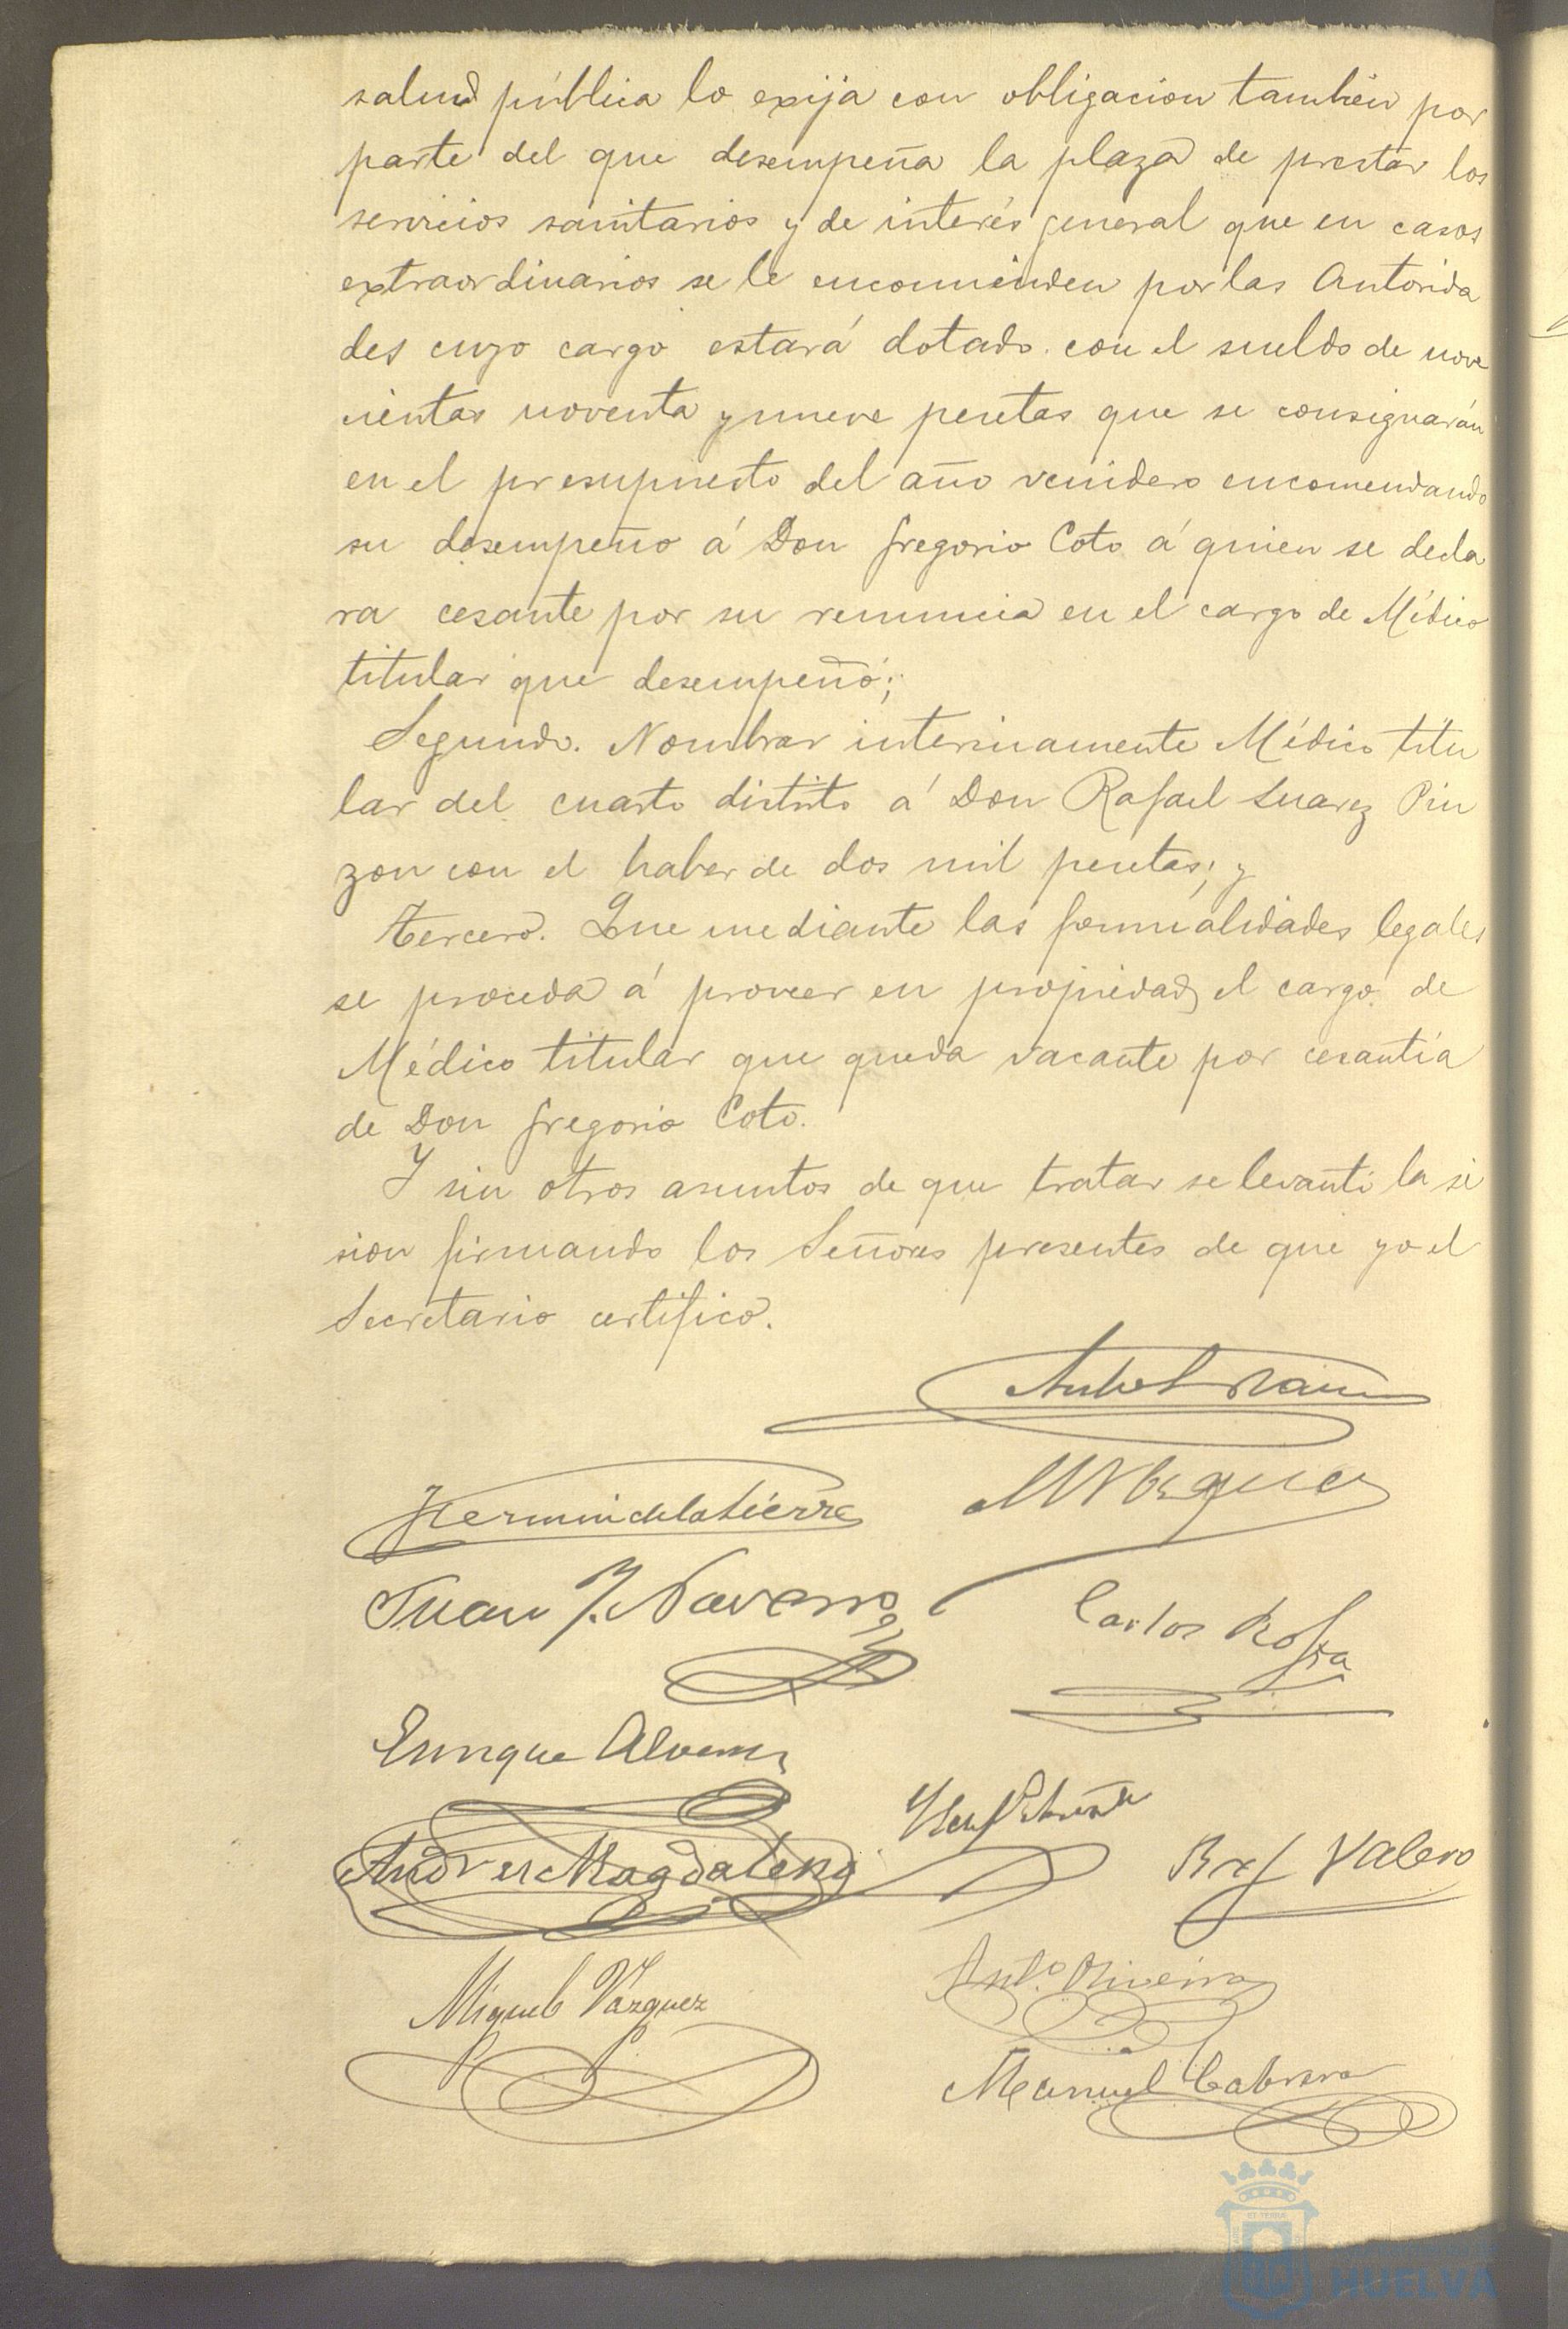 salud pública lo exija con obligacion tambien por
parte del que desempeña la plaza de prestar los
servicios sanitarios y de interés general que en casos
extraordinarios se le encomienden por las Autorida
des cuyo cargo estará dotado con el sueldo de nove
cientas noventa y nueve pesetas que se consignarán
en el presupuesto del año venidero encomendando
su desempeño á Don Gregorio Coto á quien se decla
ra cesante por su renuncia en el cargo de Médico
titular que desempeñó;
Segundo. Nombrar interinamente Médico titu
lar del cuarto distrito á Don Rafael Suarez Pin
zon con el haber de dos mil pesetas; y
Tercero. Que mediante las formalidades legales
se proceda á proveer en propiedad el cargo de
Médico titular que queda vacante por cesantía
de Don Gregorio Coto.
Y sin otros asuntos de que tratar se levantó la se
sion firmando los Señores presentes de que yo el
Secretario certifico.
M Vazquez
de la Sierra
Juan J. Navarro
Carlos
Enrique Alvarez
Andres Magdalena
Raf Valero
Miguel Vazquez
Antº Oliveira
Manuel Cabrera
HUELVA